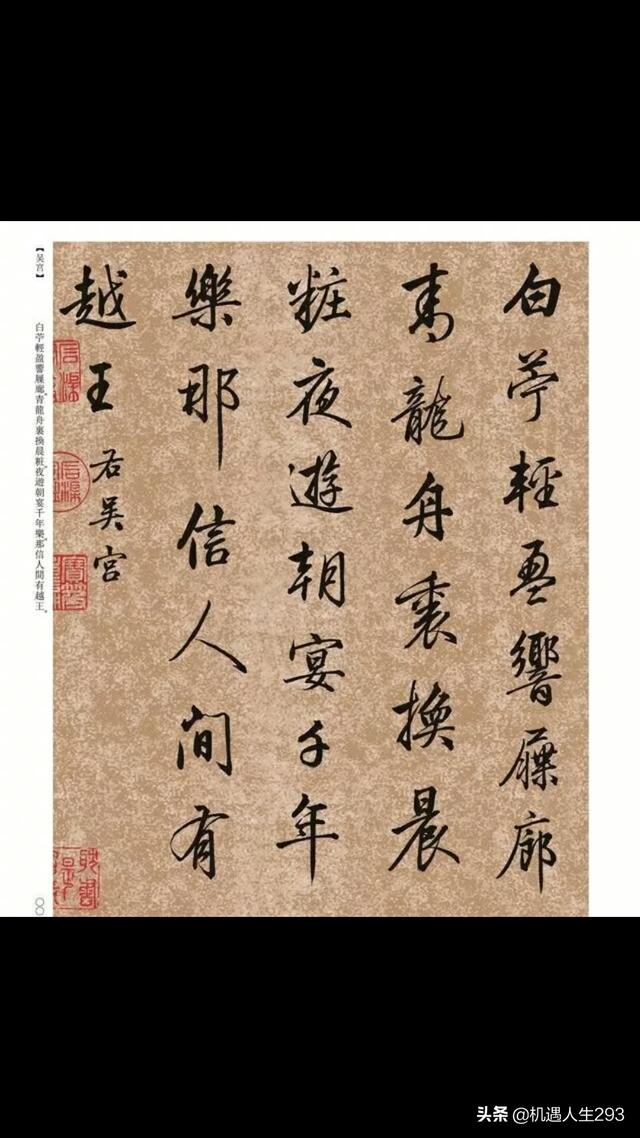 白苧輕盈響屧廊
青龍舟裏換晨
粧夜遊朝宴千年
樂那信人間有
越王
右吳宮
【吴宫】
白苧輕盈響屧廊。青龍舟裏換晨粧。夜遊朝宴千年樂。那信人間有越王。
〇〇
头条 @机遇人生293